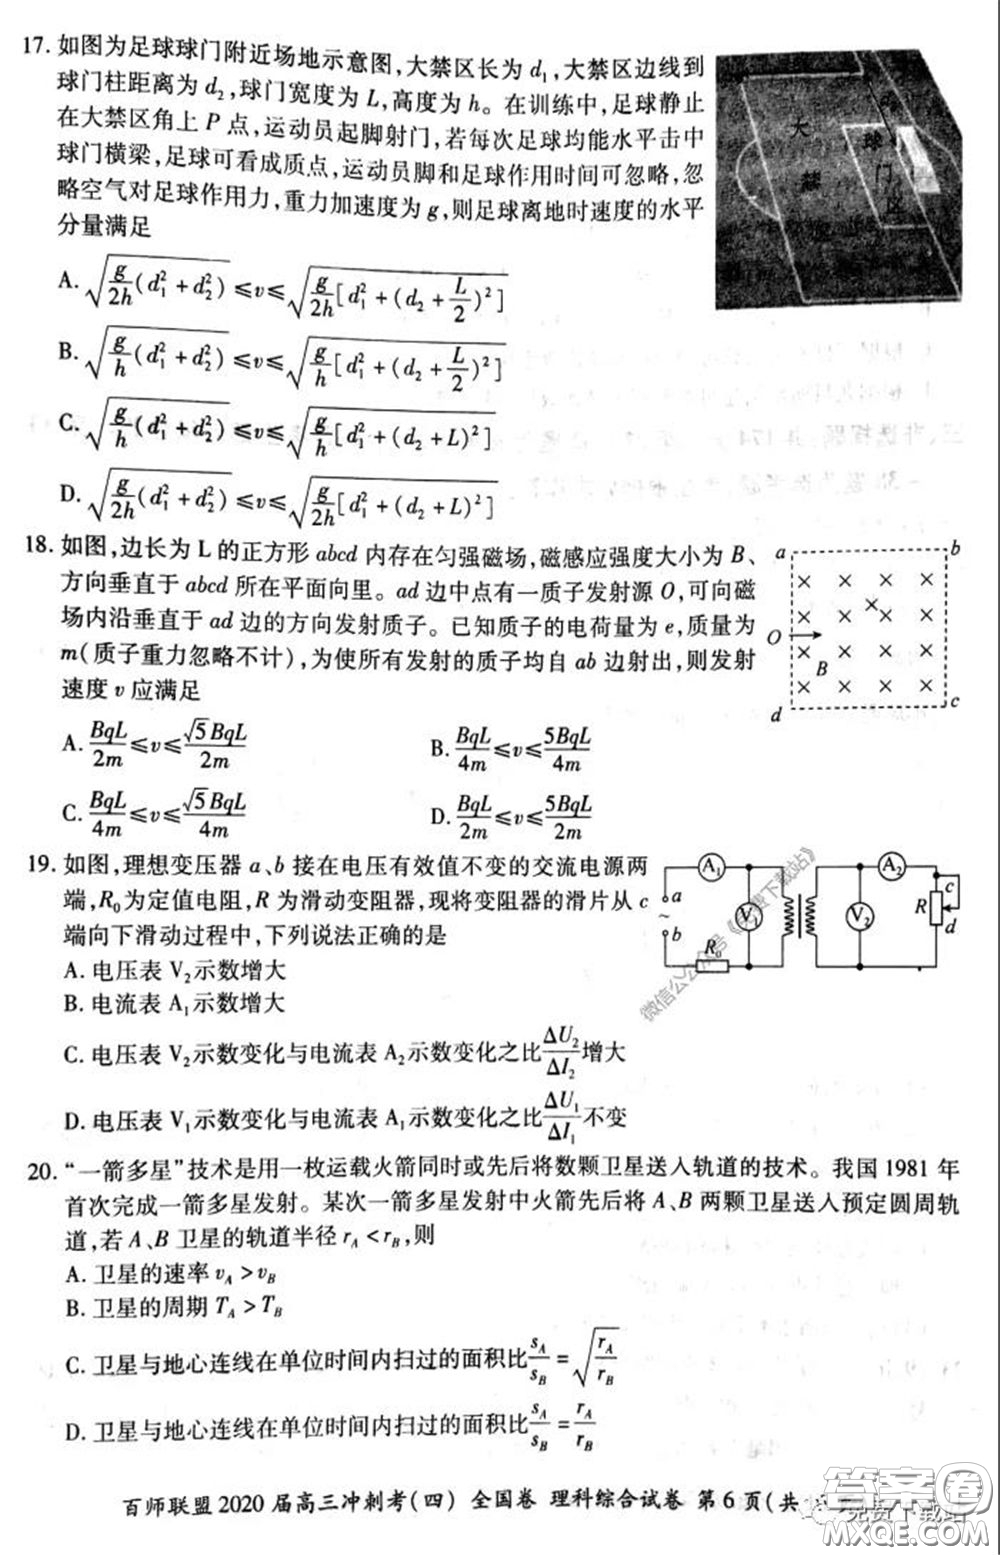 17. 如图为足球球门附近场地示意图,大禁区长为 d₁,大禁区边线到
球门柱距离为 d₂,球门宽度为 L,高度为 h。在训练中,足球静止
在大禁区角上 P 点,运动员起脚射门,若每次足球均能水平击中
球门横梁,足球可看成质点,运动员脚和足球作用时间可忽略,忽
略空气对足球作用力,重力加速度为 g,则足球离地时速度的水平
分量满足
大
禁
球
门
区
A. √(g/2h (d₁²+d₂²)) ≤v≤ √(g/2h [d₁²+(d₂+L/2)²])
B. √(g/h (d₁²+d₂²)) ≤v≤ √(g/h [d₁²+(d₂+L/2)²])
C. √(g/h (d₁²+d₂²)) ≤v≤ √(g/h [d₁²+(d₂+L)²])
D. √(g/2h (d₁²+d₂²)) ≤v≤ √(g/2h [d₁²+(d₂+L)²])
18. 如图,边长为 L 的正方形 abcd 内存在匀强磁场,磁感应强度大小为 B、
方向垂直于 abcd 所在平面向里。ad 边中点有一质子发射源 O,可向磁
场内沿垂直于 ad 边的方向发射质子。已知质子的电荷量为 e,质量为
m(质子重力忽略不计),为使所有发射的质子均自 ab 边射出,则发射
速度 v 应满足
a b
O
B
d c
A. BqL/2m ≤v≤ √5BqL/2m
B. BqL/4m ≤v≤ 5BqL/4m
C. BqL/4m ≤v≤ √5BqL/4m
D. BqL/2m ≤v≤ 5BqL/2m
19. 如图,理想变压器 a、b 接在电压有效值不变的交流电源两
端,R₀为定值电阻,R 为滑动变阻器,现将变阻器的滑片从 c
端向下滑动过程中,下列说法正确的是
A₁ A₂
a
~
b
V₁ V₂
R₀
R
c
d
A. 电压表 V₂示数增大
B. 电流表 A₁示数增大
C. 电压表 V₂示数变化与电流表 A₂示数变化之比ΔU₂/ΔI₂增大
D. 电压表 V₁示数变化与电流表 A₁示数变化之比ΔU₁/ΔI₁不变
20. “一箭多星”技术是用一枚运载火箭同时或先后将数颗卫星送入轨道的技术。我国 1981 年
首次完成一箭多星发射。某次一箭多星发射中火箭先后将 A、B 两颗卫星送入预定圆周轨
道,若 A、B 卫星的轨道半径 r_A<r_B,则
A. 卫星的速率 v_A>v_B
B. 卫星的周期 T_A>T_B
C. 卫星与地心连线在单位时间内扫过的面积比 s_A/s_B=√(r_A/r_B)
D. 卫星与地心连线在单位时间内扫过的面积比 s_A/s_B=r_A/r_B
百师联盟 2020 届高三冲刺考(四) 全国卷 理科综合试卷 第 6 页(共
答案圈
MXQE.COM